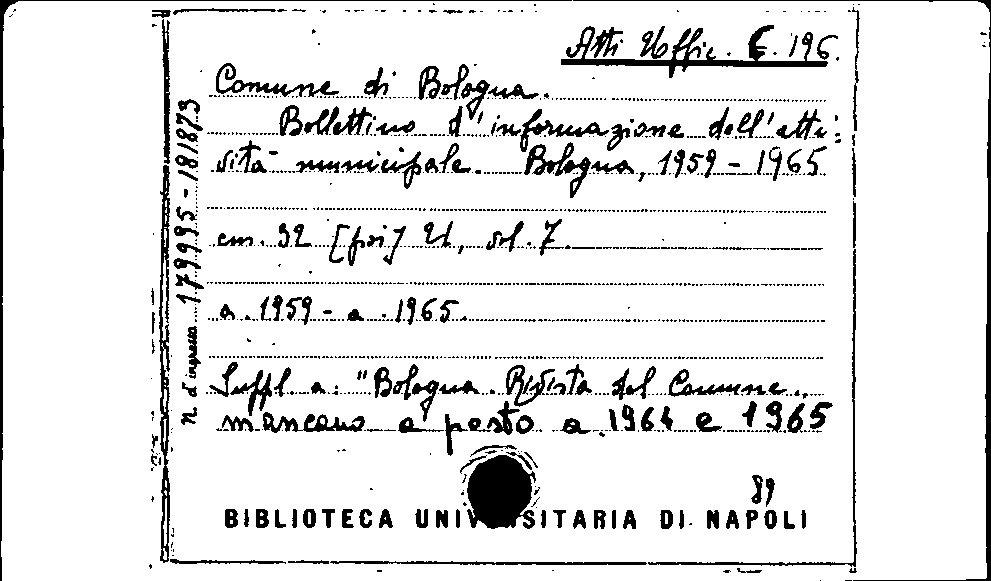 Atti Uffic. C. 196.
Comune di Bologna.
Bollettino d'informazione dell'atti-
vità municipale. Bologna, 1959 - 1965
cm. 32 [poi] 24, vol. 7.
a. 1959 - a. 1965.
Suppl. a: "Bologna. Rivista del Comune".
mancano a posto a. 1964 e 1965
89
BIBLIOTECA UNIVERSITARIA DI NAPOLI
N. d'ingresso 179995 - 181873